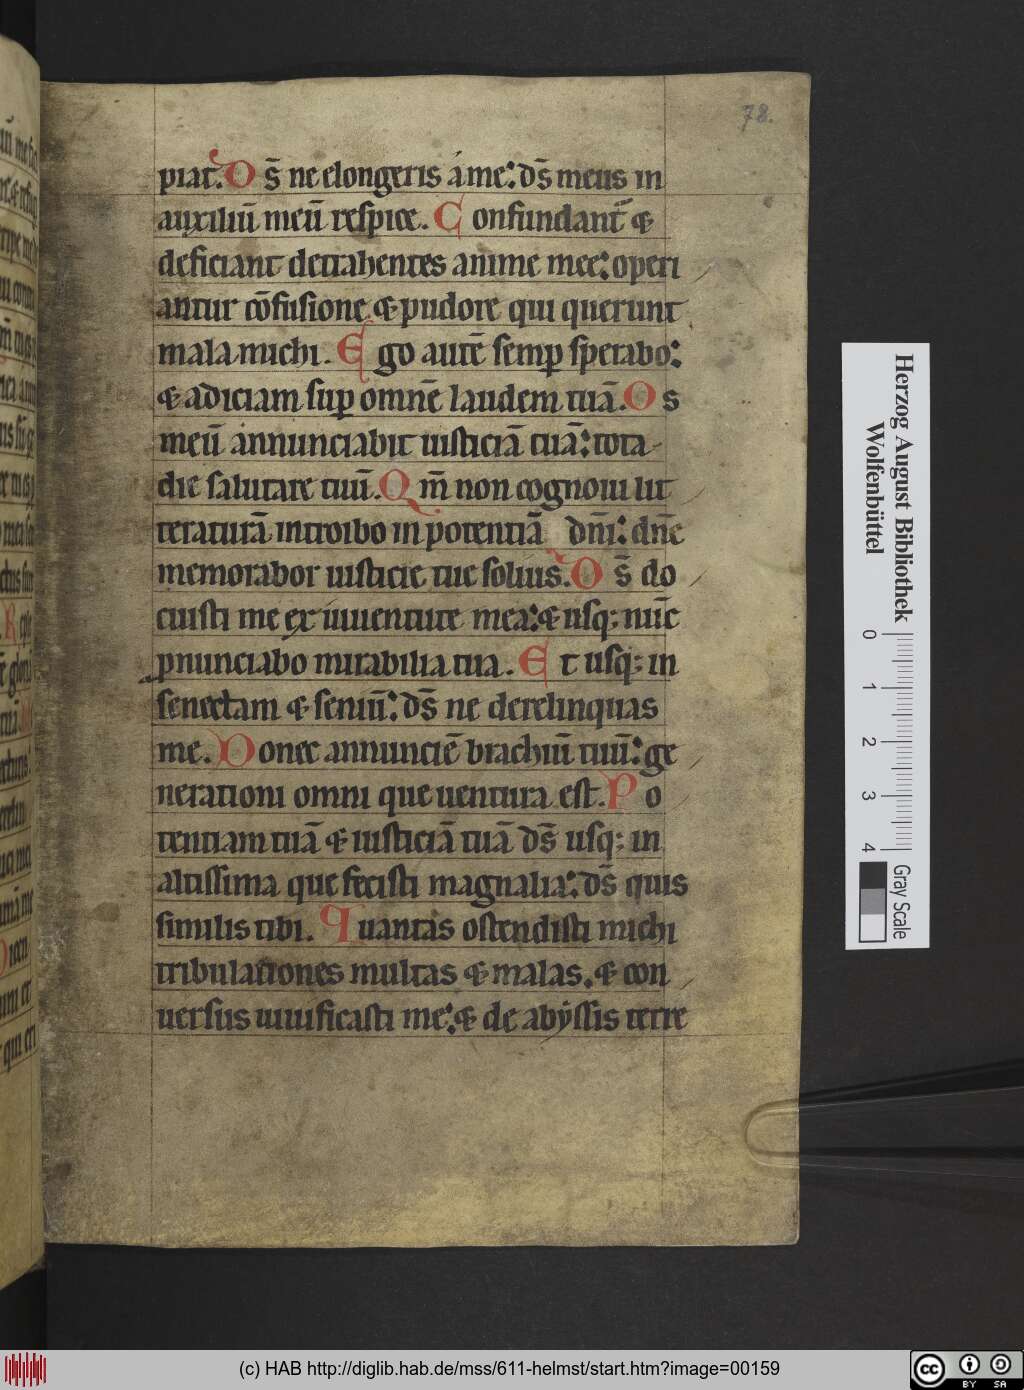 78.
piat. Ds̄ ne elongeris a me: ds̄ meus in
auxiliū meū respice. Confundant̄ &
deficiant detrahentes anime mee: operi
antur cōfusione & pudore qui querunt
mala michi. Ego autē semꝑ sperabo:
& adiciam suꝑ omnē laudem tuā. Os
meū annunciabit iusticiā tuā: tota
die salutare tuū. Qm̄ non cognoui lit
teraturā introibo in potentiā dn̄i: dn̄e
memorabor iusticie tue solius. Ds̄ do
cuisti me ex iuuentute mea: & usq; nūc
pnunciabo mirabilia tua. Et usq; in
senectam & seniū: ds̄ ne derelinquas
me. Donec annunciē brachiū tuū: ge
nerationi omni que uentura est. Po
tentiam tuā & iusticiā tuā ds̄ usq; in
altissima que fecisti magnalia: ds̄ quis
similis tibi. Quantas ostendisti michi
tribulationes multas & malas. & con
uersus uiuificasti me: & de abyssis terre
Herzog August Bibliothek
Wolfenbüttel
0 1 2 3 4
Gray Scale
(c) HAB http://diglib.hab.de/mss/611-helmst/start.htm?image=00159
cc BY SA